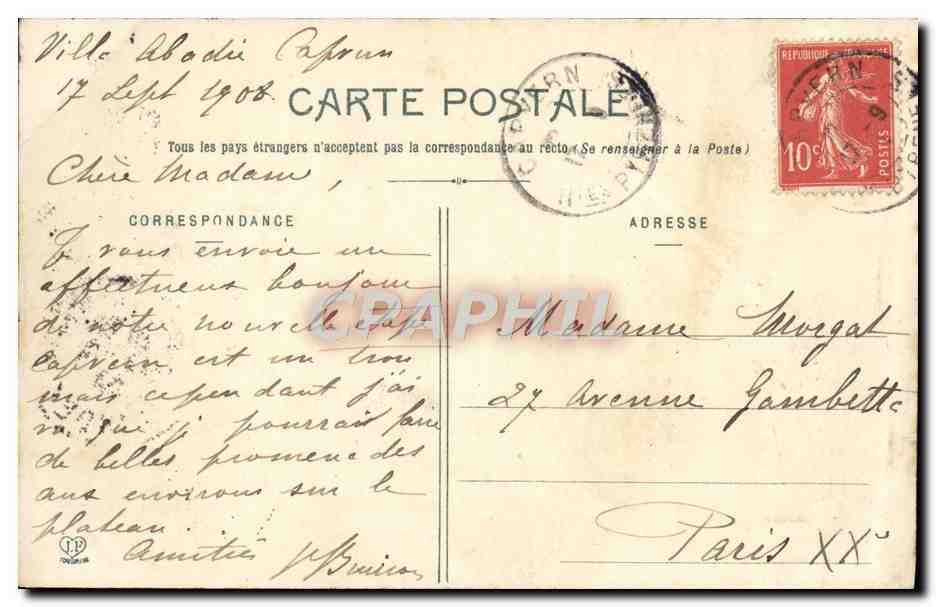 Villa Abadie Capvern
17 Sept 1908.
CARTE POSTALE
Tous les pays étrangers n'acceptent pas la correspondance au recto (Se renseigner à la Poste)
Chère Madame,
CORRESPONDANCE
Je vous envoie un
affectueux bonjour
de notre nouvelle étape
capvern est un trou
mais cependant j'ai
vu que je pourrais faire
de belles promenades
aux environs sur le
plateau.
Amitiés
ADRESSE
Madame Morgat
27 Avenue Gambetta
Paris XXe
REPUBLIQUE FRANÇAISE
10c
POSTES
CAPVERN
HTES PYRÉNÉES
CPAPHIL